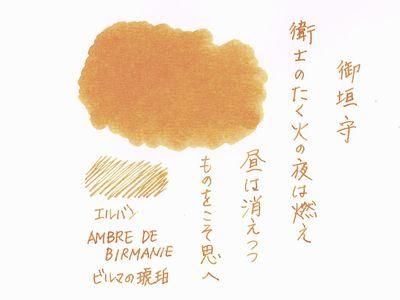 御垣守
衛士のたく火の夜は燃え
昼は消えつつ
ものをこそ思へ
エルバン
AMBRE DE
BIRMANIE
ビルマの琥珀